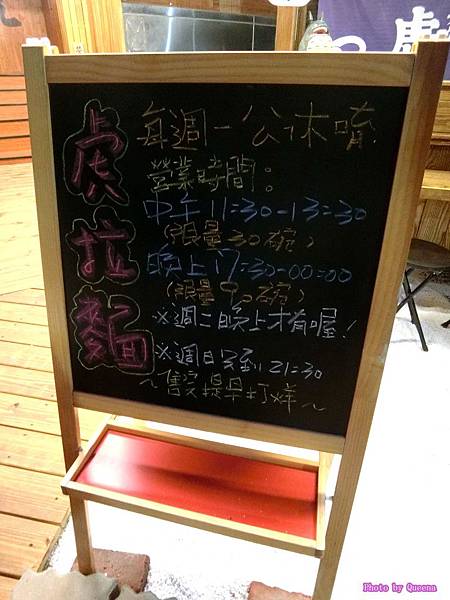 虎拉麵
每週一公休唷
營業時間：
中午 11:30-13:30
（限量30碗）
晚上 17:30-00:00
（限量90碗）
※週二晚上才有喔！
※週日只到 21:30
～售完提早打烊～
虎
Photo by Queena